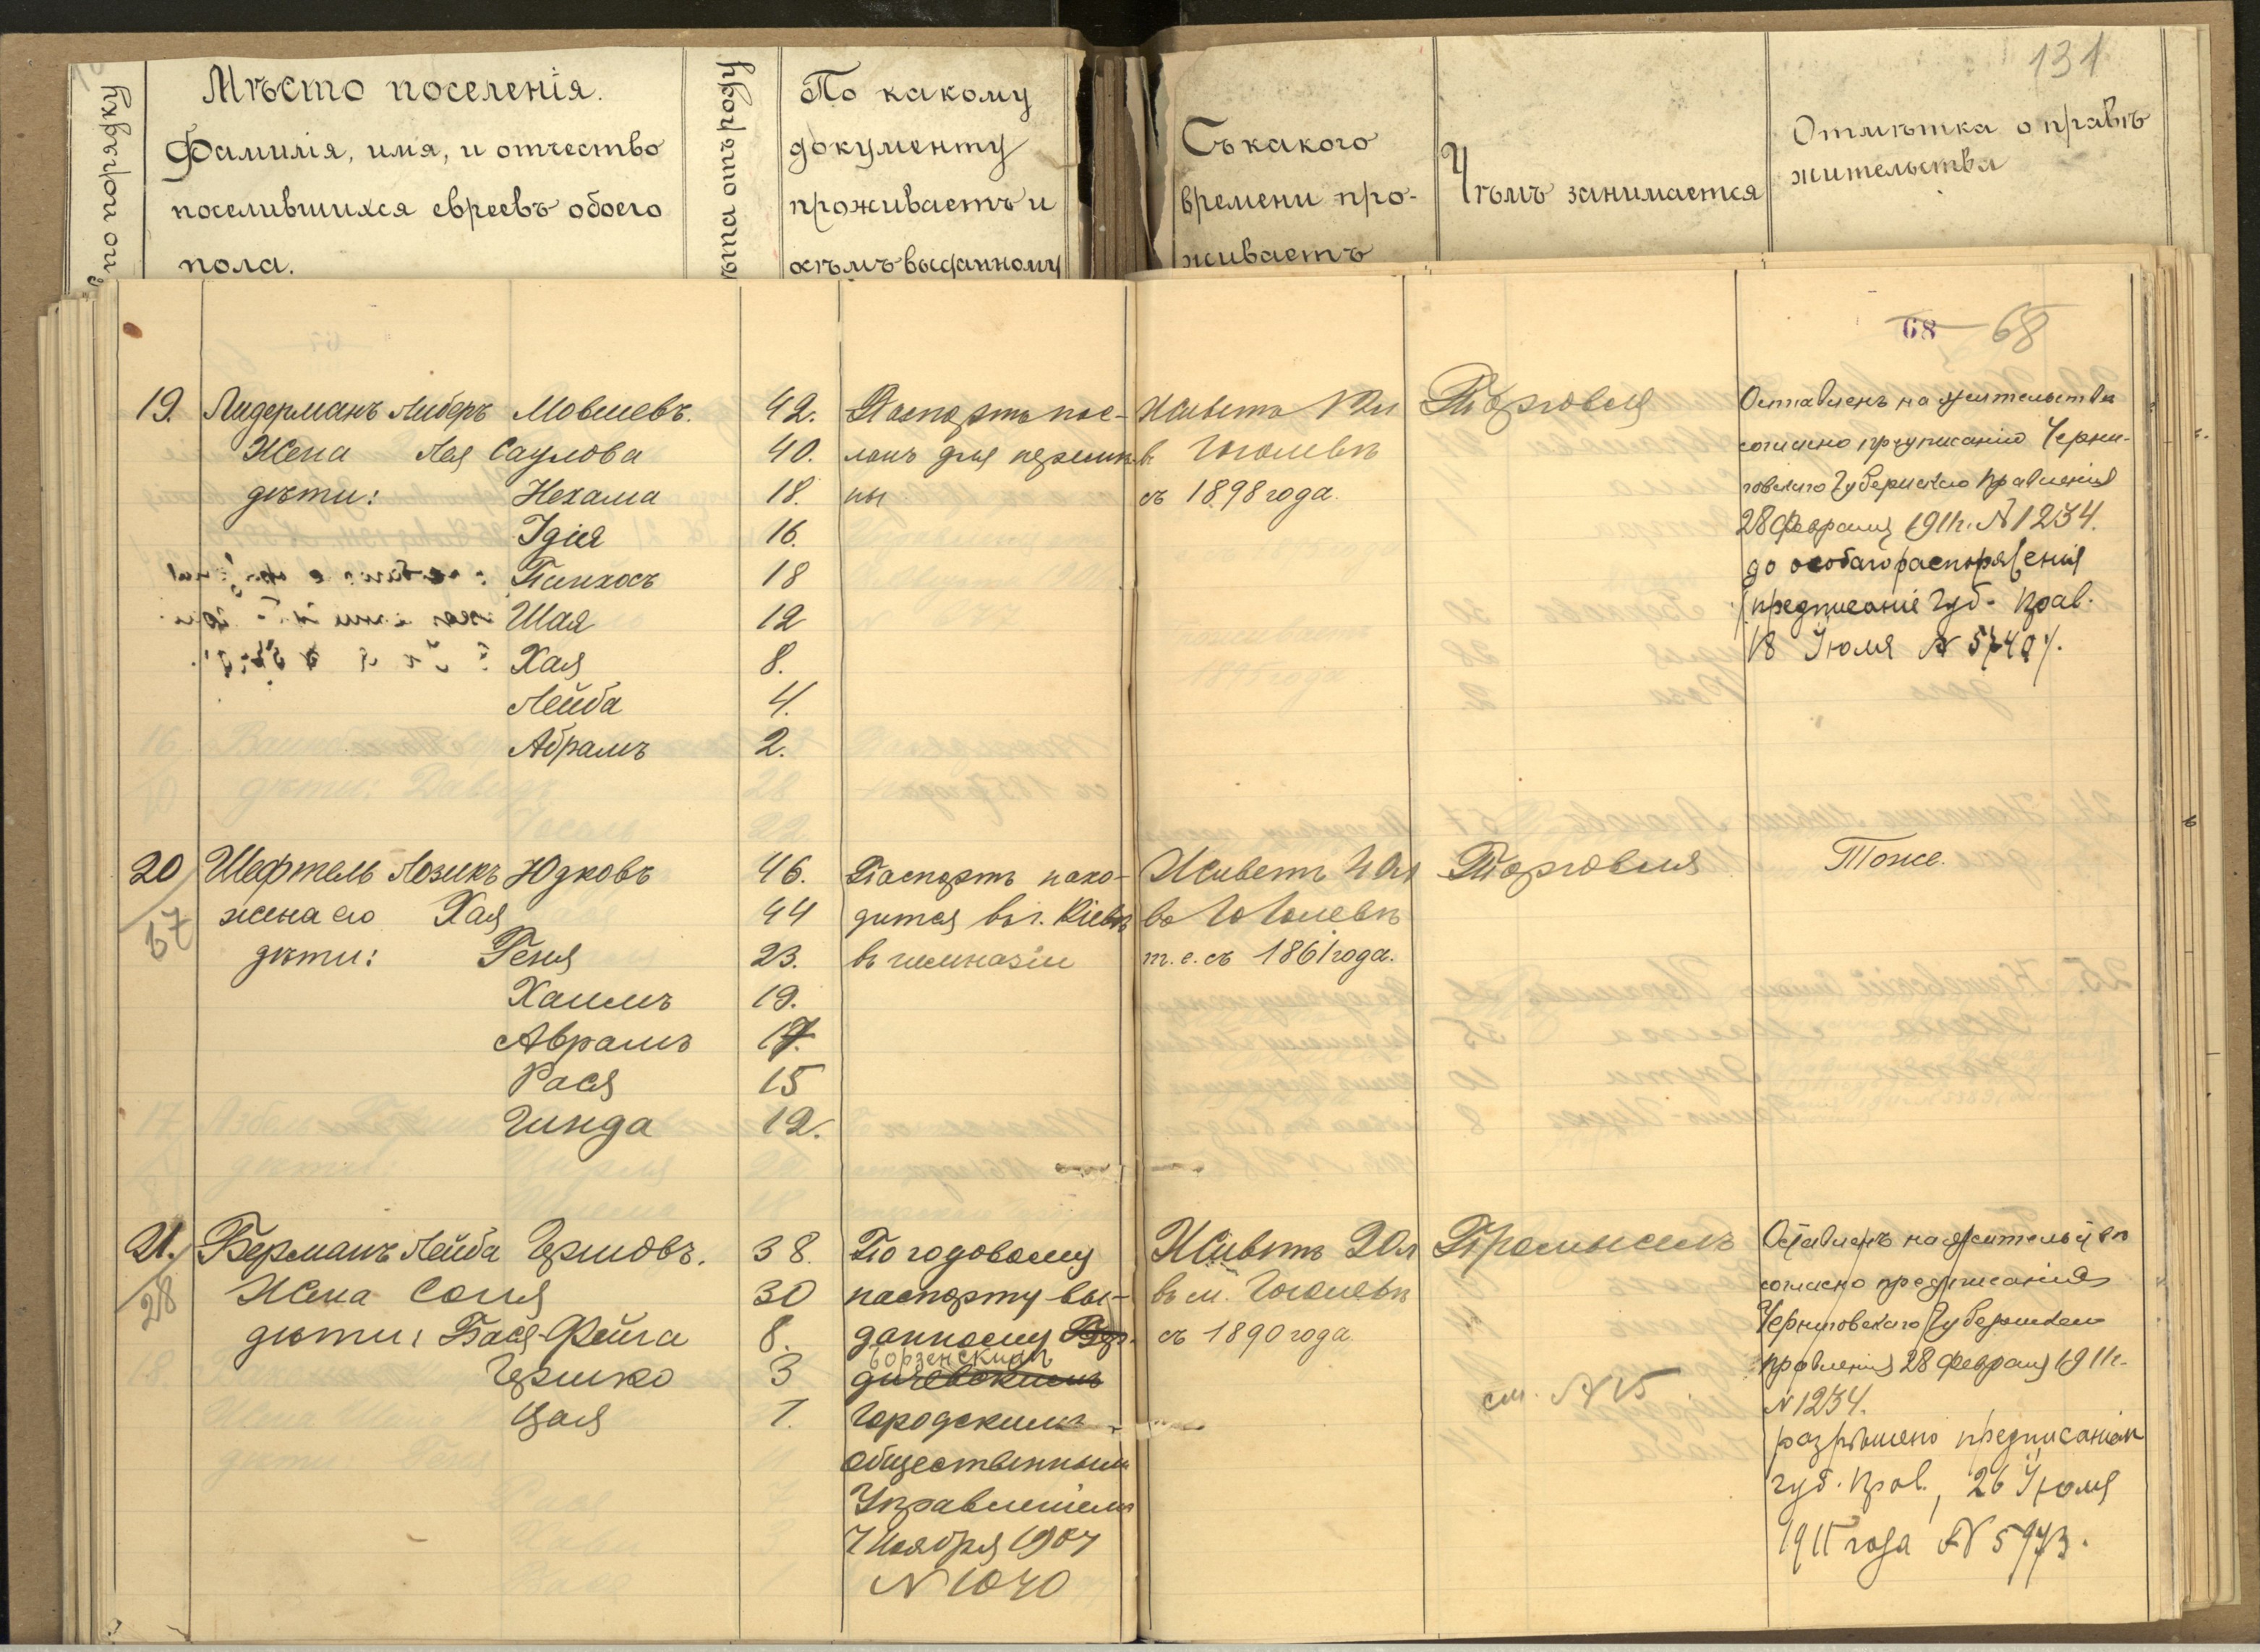 131
№ по порядку
Мѣсто поселенія.
Фамилія, имя, и отчество
поселившихся евреевъ обоего
пола.
Лѣта отъ роду
По какому
документу
проживаетъ и
кѣмъ выданному
Съ какого
времени про-
живаетъ
Чѣмъ занимается
Отмѣтка о правѣ
жительства
68 68
19. Лидерманъ Либеръ Мовшевъ. 42. Паспортъ пос- Живетъ 12л Торговля
Жена Лея Саулова 40. ланъ для перемѣ в Гоголевѣ
дѣти: Нехама 18. ны съ 1898 года.
Идія 16.
Пинхосъ 18
Шая 12
Хая 8.
Лейба 4.
Абрамъ 2.
Оставленъ на жительствѣ
согласно предписанію Черни-
говскаго Губернскаго Правленія
28 Февраля 1911г. № 1234.
до особаго распоряженія
(предписаніе Губ. Прав.
18 Іюля №
20 Шефтель Лозикъ Юдковъ 46. Паспортъ нахо- Живетъ 40л Торговля Тоже.
37 жена его Хая 44 дится въ г. Кіевѣ во Гоголевѣ
дѣти: Геня 23. въ гимназіи т.е. съ 1861 года.
Хаимъ 19.
Аврамъ 17.
Рася 15
Гинда 12.
21. Берманъ Лейба Гершовъ. 38. По годовому Живетъ 20л Промыселъ
28 Жена Соня 30 паспорту вы- въ м. Гоголевѣ
дѣти: Бася-Фейга 8. данному Бер- съ 1890 года.
борзенскимъ
Гершко 3 дичевскимъ
см. № 15
Цая 1. Городскимъ
Общественнымъ
Управленіемъ
7 Ноября 1907
№ 1040
Оставленъ на жительствѣ
согласно предписанія
Черниговскаго Губернскаго
правленія 28 Февраля 1911г.
№ 1234.
разрѣшено предписаніемъ
губ. прав., 26 Іюля
1911 года № 5973.